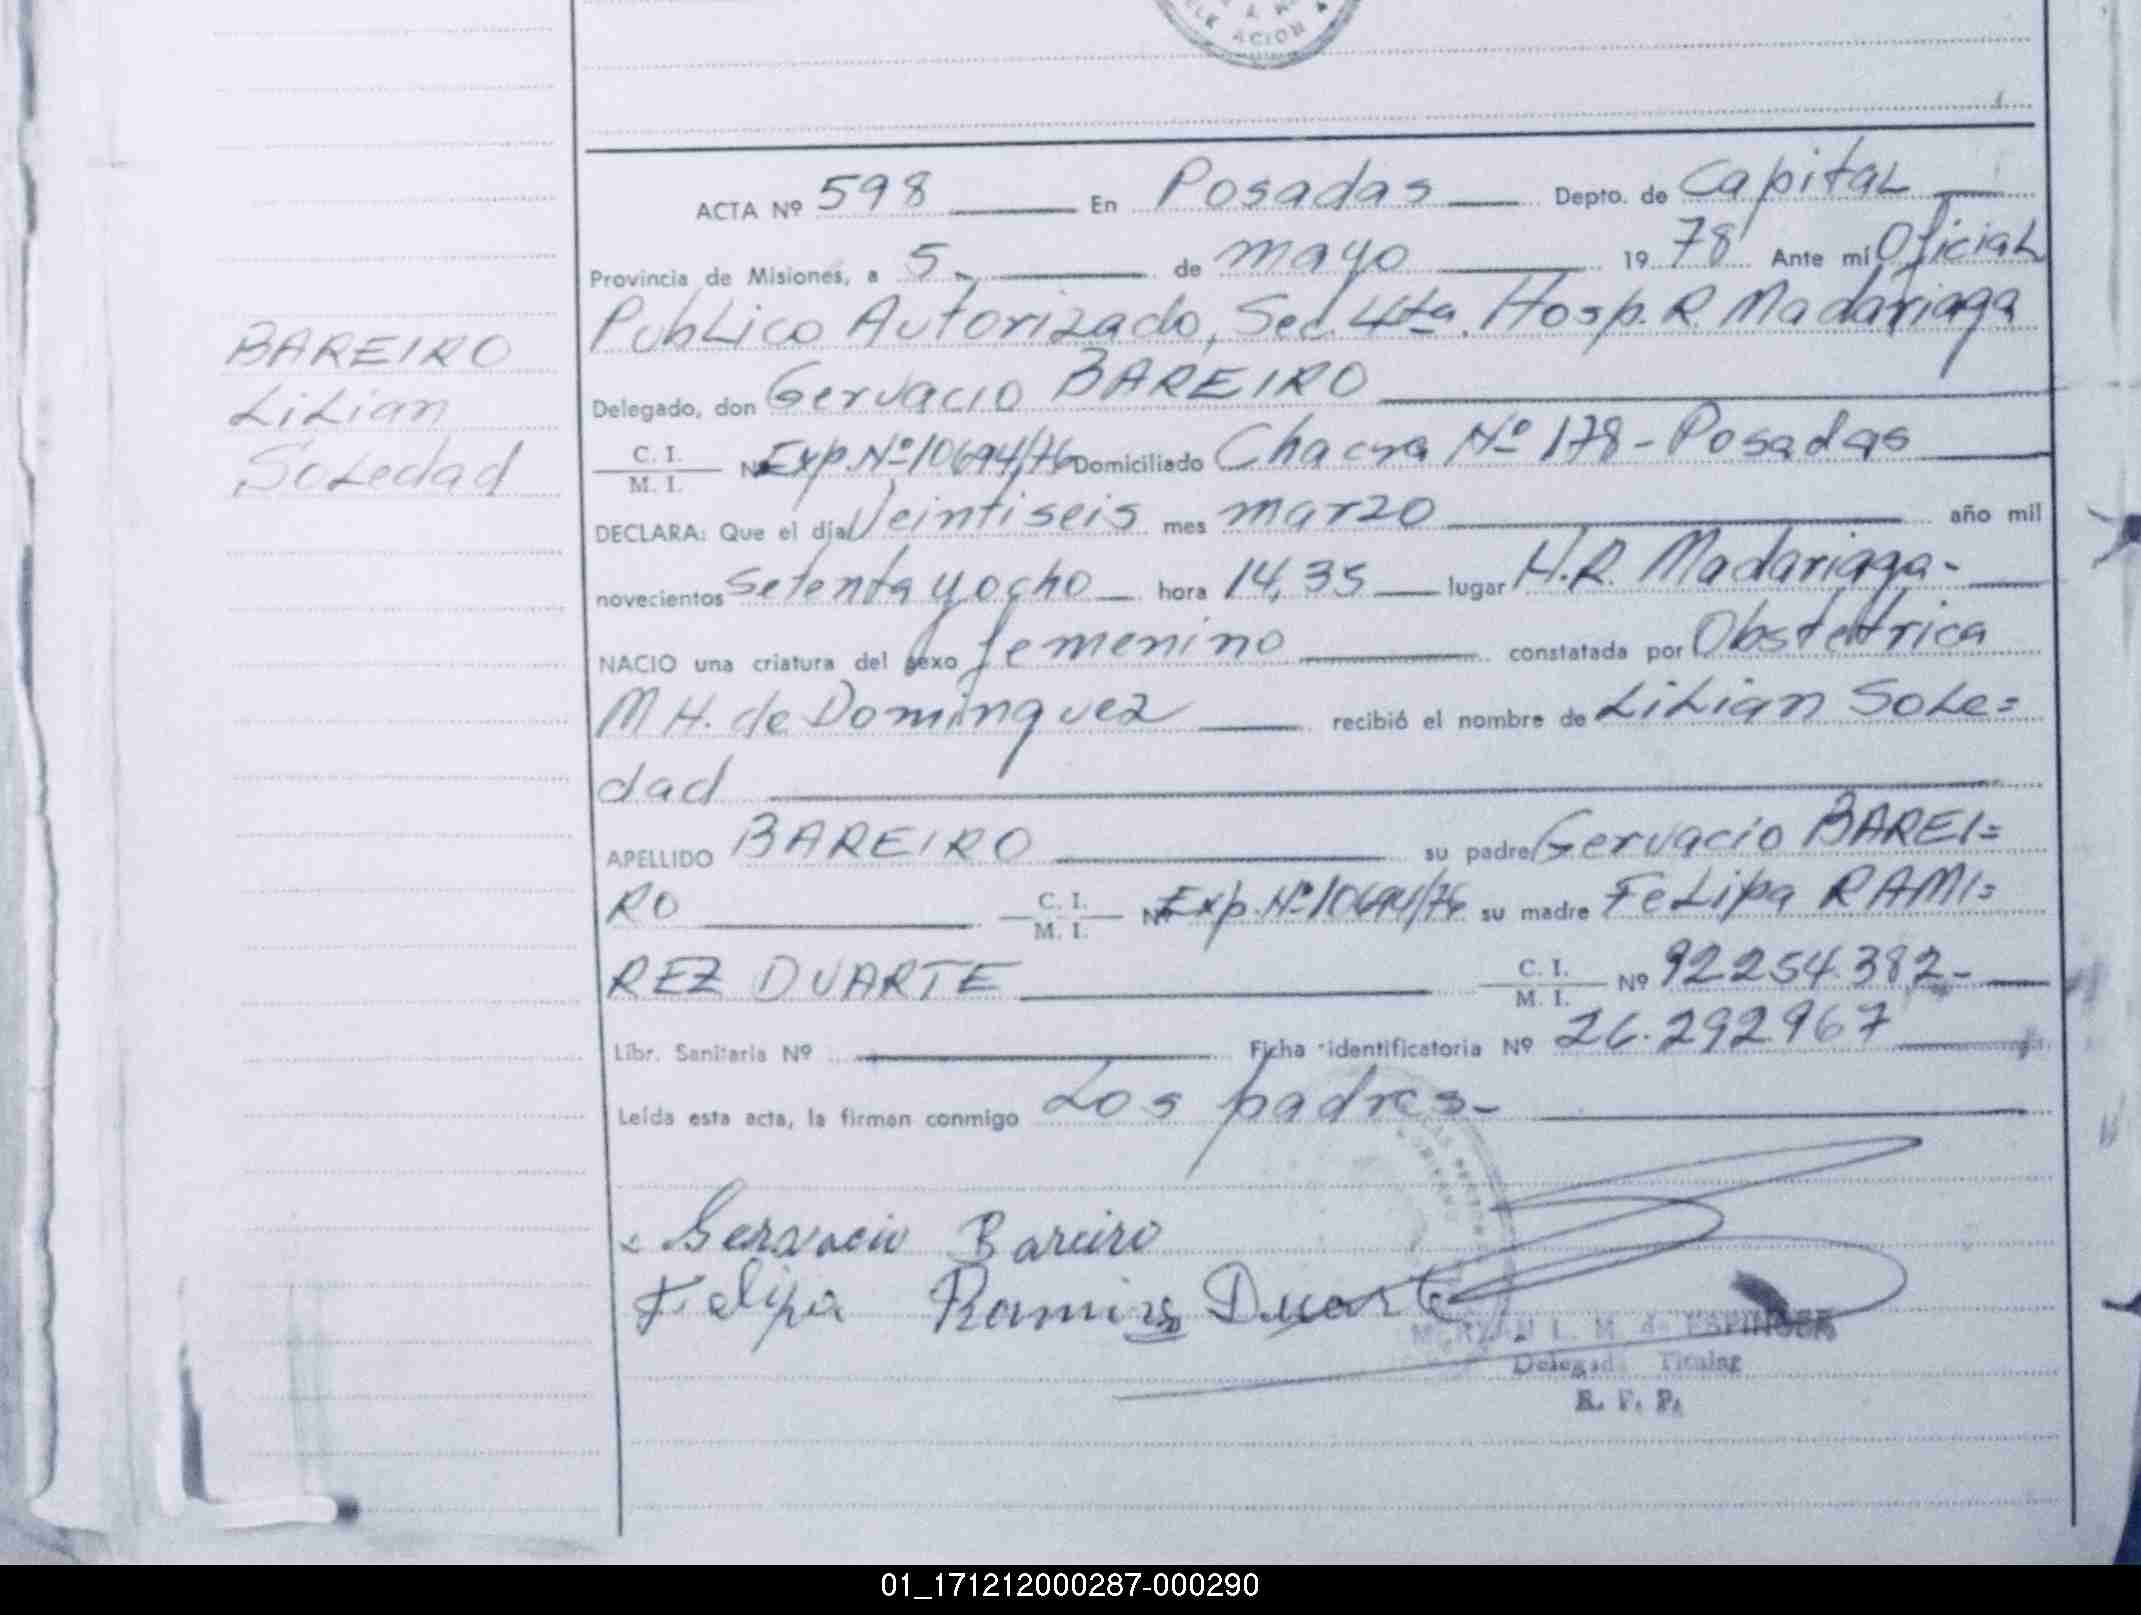 ACION
ACTA Nº 598 En Posadas Depto. de Capital
Provincia de Misiones, a 5 de mayo 19 78 Ante mi Oficial
Publico Autorizado, Sec. 4ta. Hosp. R. Madariaga
BAREIRO
Lilian
Soledad
Delegado, don Gervacio BAREIRO
C. I.
M. I. Nº Exp. Nº 10694/76 Domiciliado Chacra Nº 178 - Posadas
DECLARA: Que el día Veintiseis mes marzo año mil
novecientos setenta y ocho hora 14,35 lugar H.R. Madariaga-
NACIO una criatura del sexo femenino constatada por Obstetrica
M H. de Dominguez recibió el nombre de Lilian Sole=
dad
APELLIDO BAREIRO su padre Gervacio BAREI=
RO C. I. M. I. Nº Exp. Nº 10694/76 su madre Felipa RAMI=
REZ DUARTE C. I. M. I. Nº 92254.382-
Libr. Sanitaria Nº Ficha identificatoria Nº 26.292.967
Leída esta acta, la firman conmigo Los padres-
Gervacio Bareiro
Felipa Ramirez Duarte
L. M. de ESPINOSA
Delegada Titular
R. P. P.
01_171212000287-000290